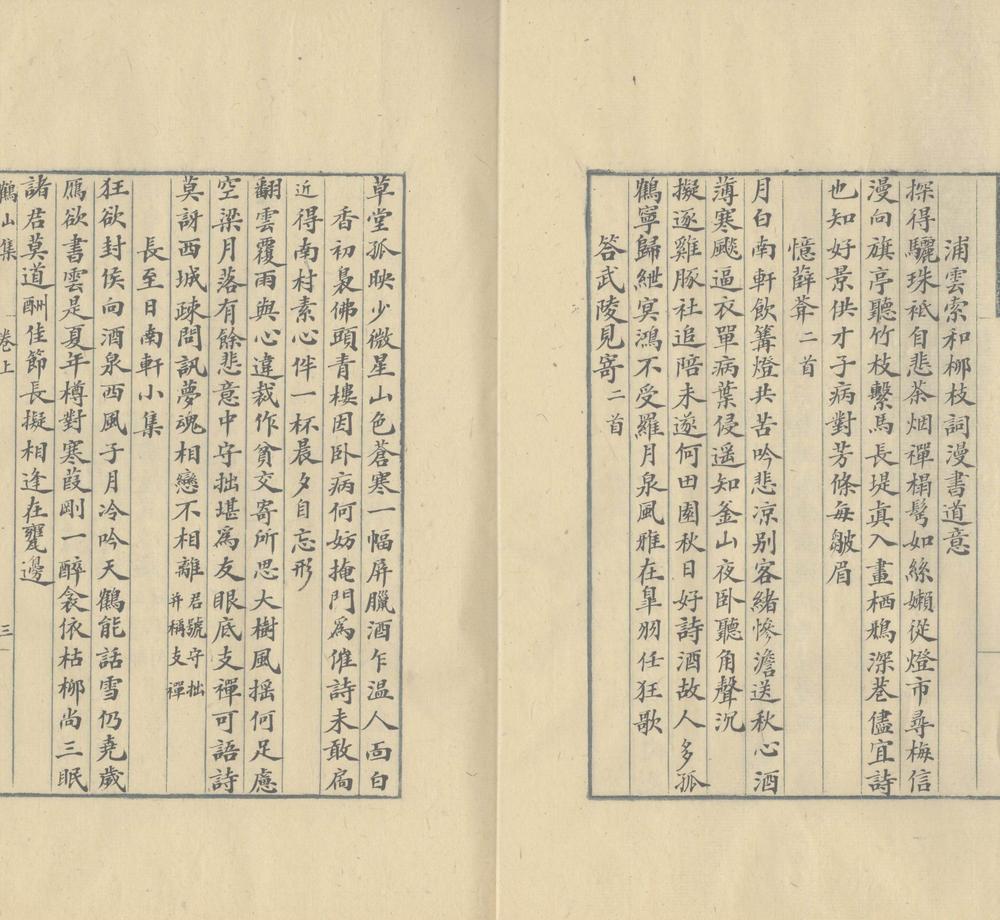 浦雲索和柳枝詞漫書道意
探得驪珠袛自悲茶烟禪榻鬢如絲嬾從燈市尋梅信
漫向旗亭聽竹枝繫馬長堤真入畫栖鴉深巷儘宜詩
也知好景供才子病對芳條每皺眉
憶薛莽二首
月白南軒飲篝燈共苦吟悲凉别客緒慘澹送秋心酒
薄寒飈逼衣單病葉侵遥知釜山夜卧聽角聲沉
擬逐雞豚社追陪未遂何田園秋日好詩酒故人多孤
鶴寧歸紲冥鴻不受羅月泉風雅在皐羽任狂歌
答武陵見寄二首
草堂孤映少微星山色蒼寒一幅屏臘酒乍温人面白
香初裊佛頭青樓因卧病何妨掩門為催詩未敢扃
近得南村素心伴一杯晨夕自忘形
翻雲覆雨與心違裁作貧交寄所思大樹風揺何足慮
空梁月落有餘悲意中守拙堪為友眼底支禪可語詩
莫訝西城疎問訊夢魂相戀不相離君號守拙并稱支禪
長至日南軒小集
狂欲封侯向酒泉西風子月冷吟天鶴能話雪仍堯歲
鴈欲書雲是夏年樽對寒葭剛一醉衾依枯柳尚三眠
諸君莫道酬佳節長擬相逢在甕邊
鶴山集 卷上 三